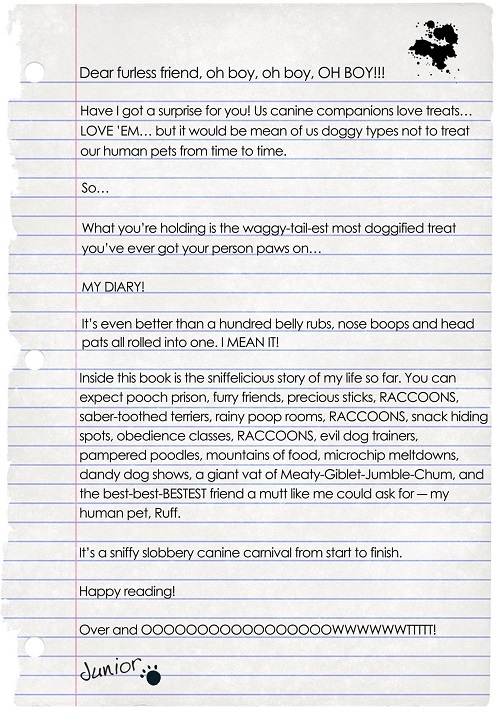 Dear furless friend, oh boy, oh boy, OH BOY!!!
Have I got a surprise for you! Us canine companions love treats…
LOVE 'EM… but it would be mean of us doggy types not to treat
our human pets from time to time.
So…
What you're holding is the waggy-tail-est most doggified treat
you've ever got your person paws on…
MY DIARY!
It's even better than a hundred belly rubs, nose boops and head
pats all rolled into one. I MEAN IT!
Inside this book is the sniffelicious story of my life so far. You can
expect pooch prison, furry friends, precious sticks, RACCOONS,
saber-toothed terriers, rainy poop rooms, RACCOONS, snack hiding
spots, obedience classes, RACCOONS, evil dog trainers,
pampered poodles, mountains of food, microchip meltdowns,
dandy dog shows, a giant vat of Meaty-Giblet-Jumble-Chum, and
the best-best-BESTEST friend a mutt like me could ask for — my
human pet, Ruff.
It's a sniffy slobbery canine carnival from start to finish.
Happy reading!
Over and OOOOOOOOOOOOOOOOOWWWWWWTTTTT!
Junior